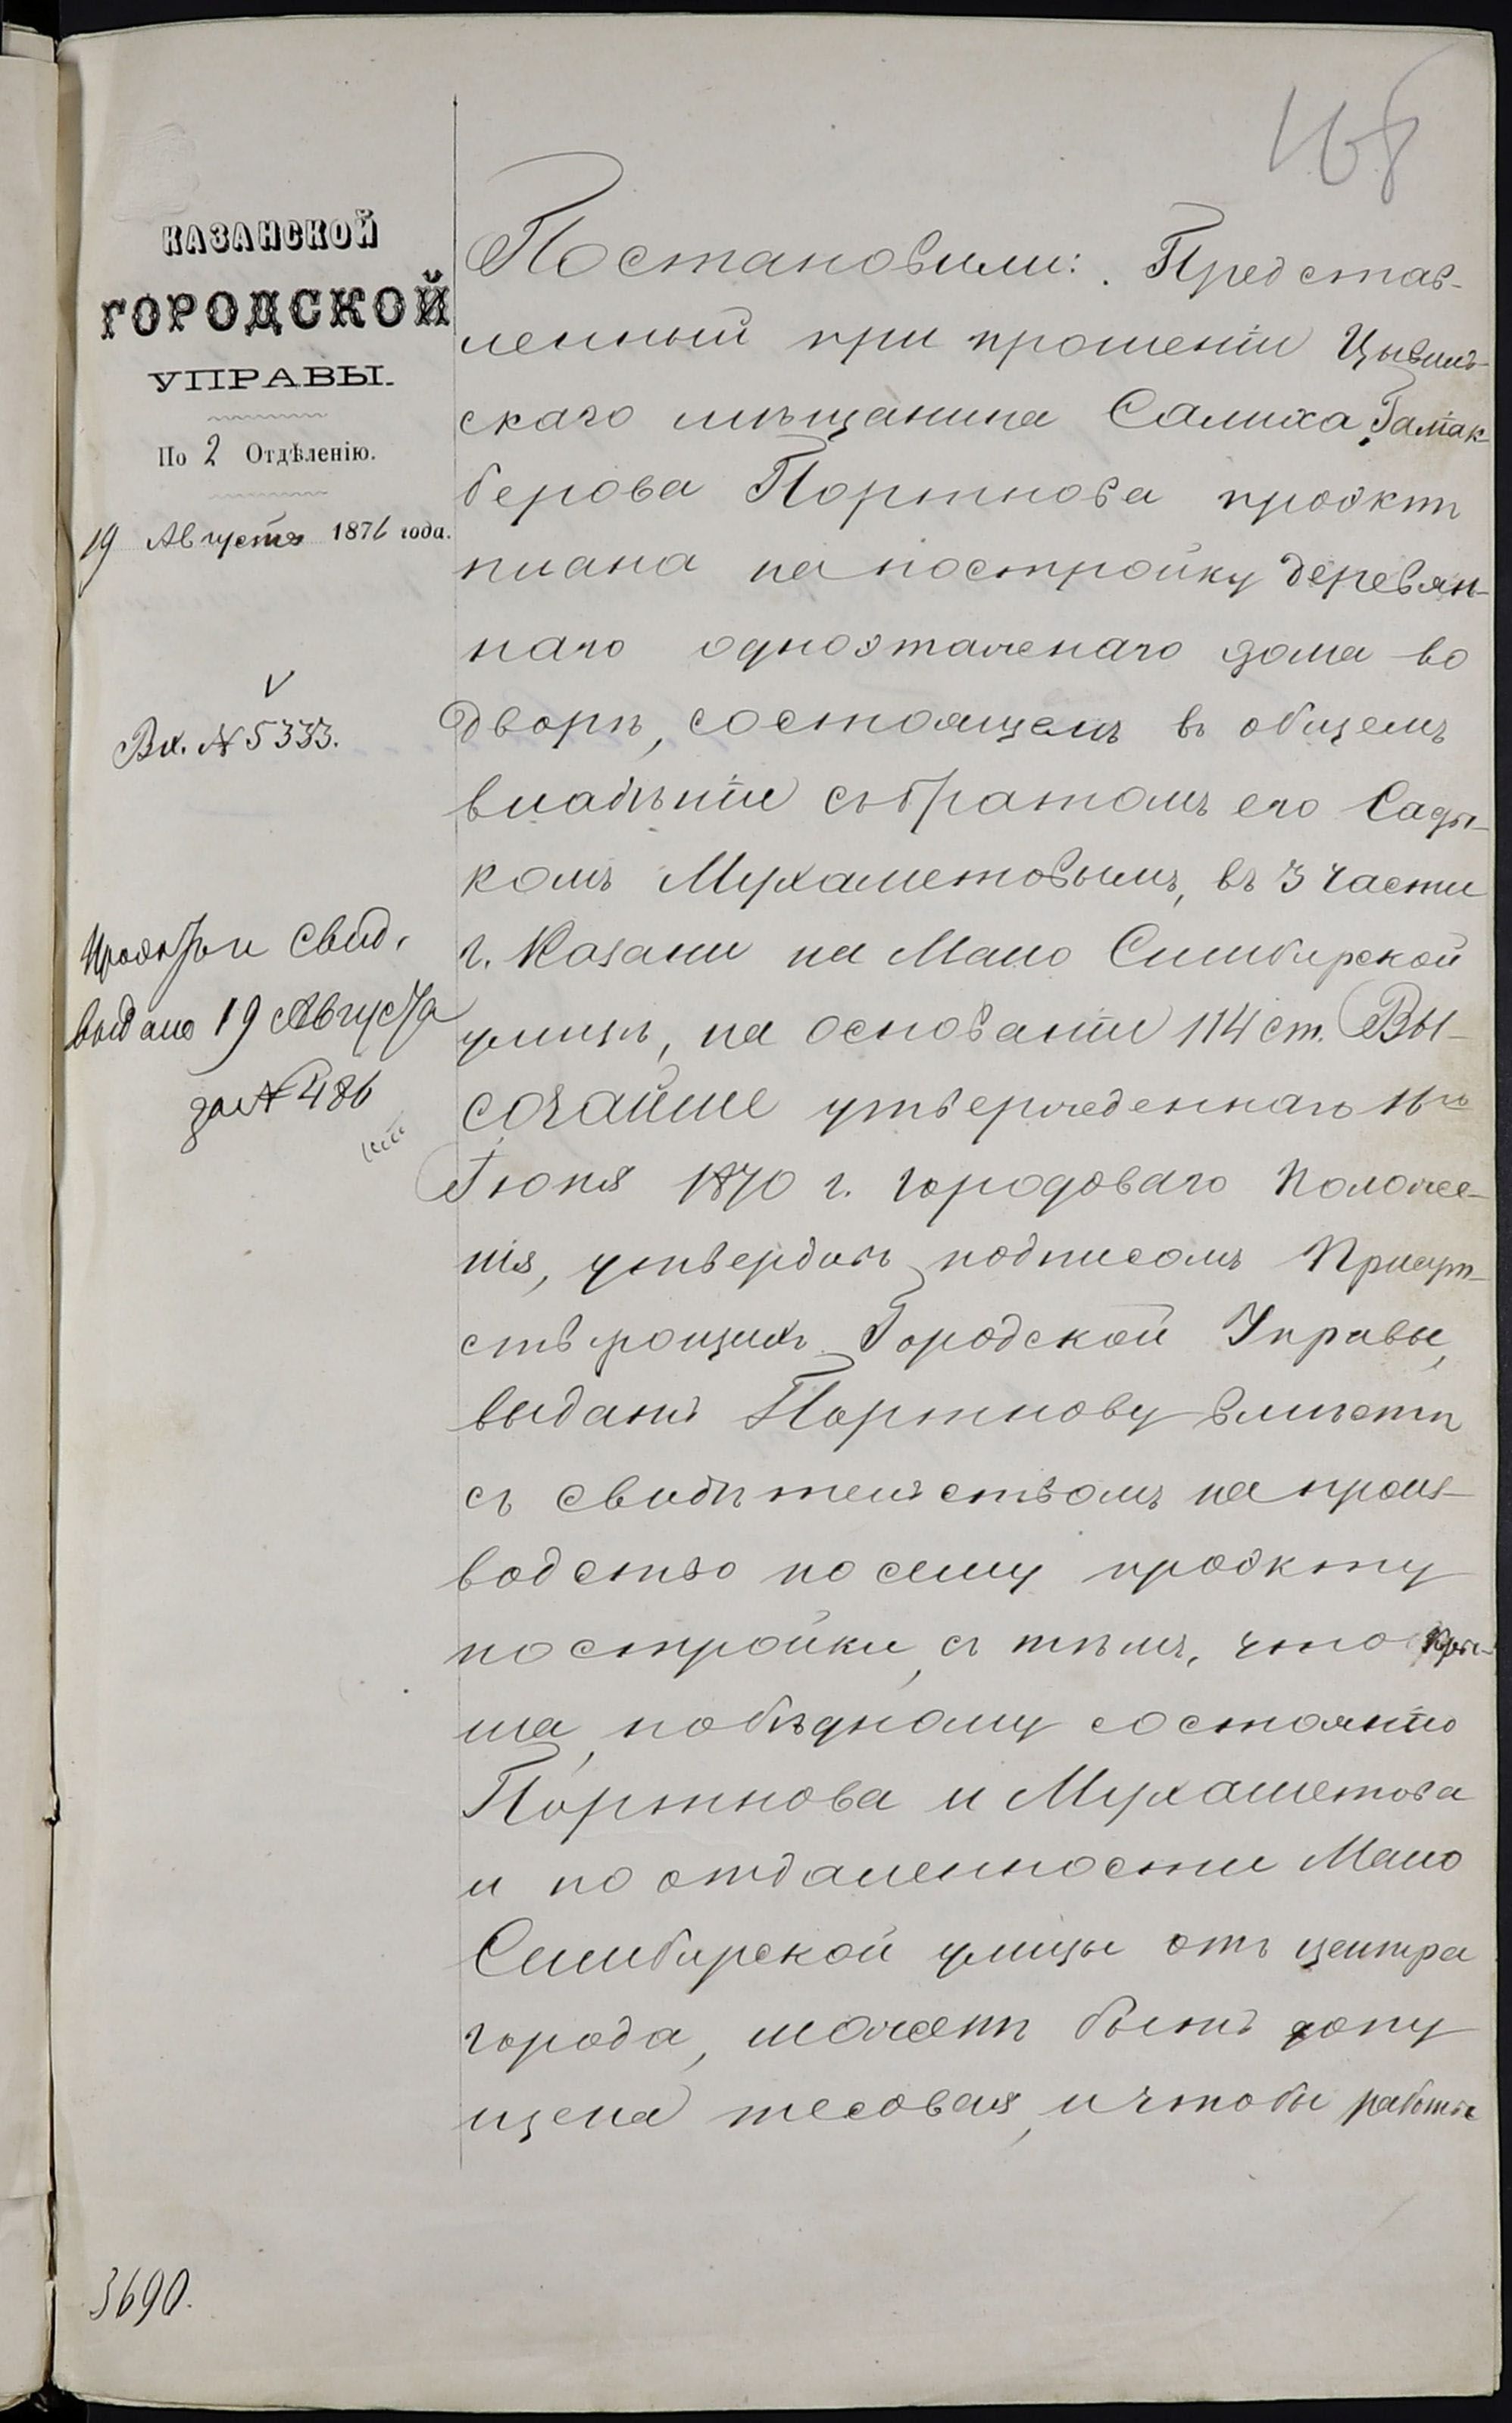 168
КАЗАНСКОЙ
ГОРОДСКОЙ
УПРАВЫ.
По 2 Отдѣленію.
19 Августа 1876 года.
Вх. № 5333.
Проэктъ и свид.
выдано 19 Августа
за № 486
3690.
Постановили: Представ-
ленный при прошеніи Цывиль-
скаго мѣщанина Салиха Галіак-
берова Портнова проэктъ
плана на постройку деревян-
наго одноэтажнаго дома во
дворѣ, состоящемъ въ общемъ
владѣніи съ братомъ его Сады-
комъ Мухаметовымъ, въ 3 части
г. Казани на Мало Симбирской
улицѣ, на основаніи 114 ст. Вы-
сочайше утвержденнаго 16го
Іюня 1870 г. Городоваго Положе-
нія, утвердивъ подписомъ Присут-
ствующихъ Городской Управы,
выдать Портнову вмѣстѣ
съ свидѣтельствомъ на произ-
водство по сему проэкту
постройки, съ тѣмъ, что кры-
ша, по бѣдному состоянію
Портнова и Мухаметова
и по отдаленности Мало
Симбирской улицы отъ центра
города, можетъ быть допу
щена тесовая, и чтобы работы